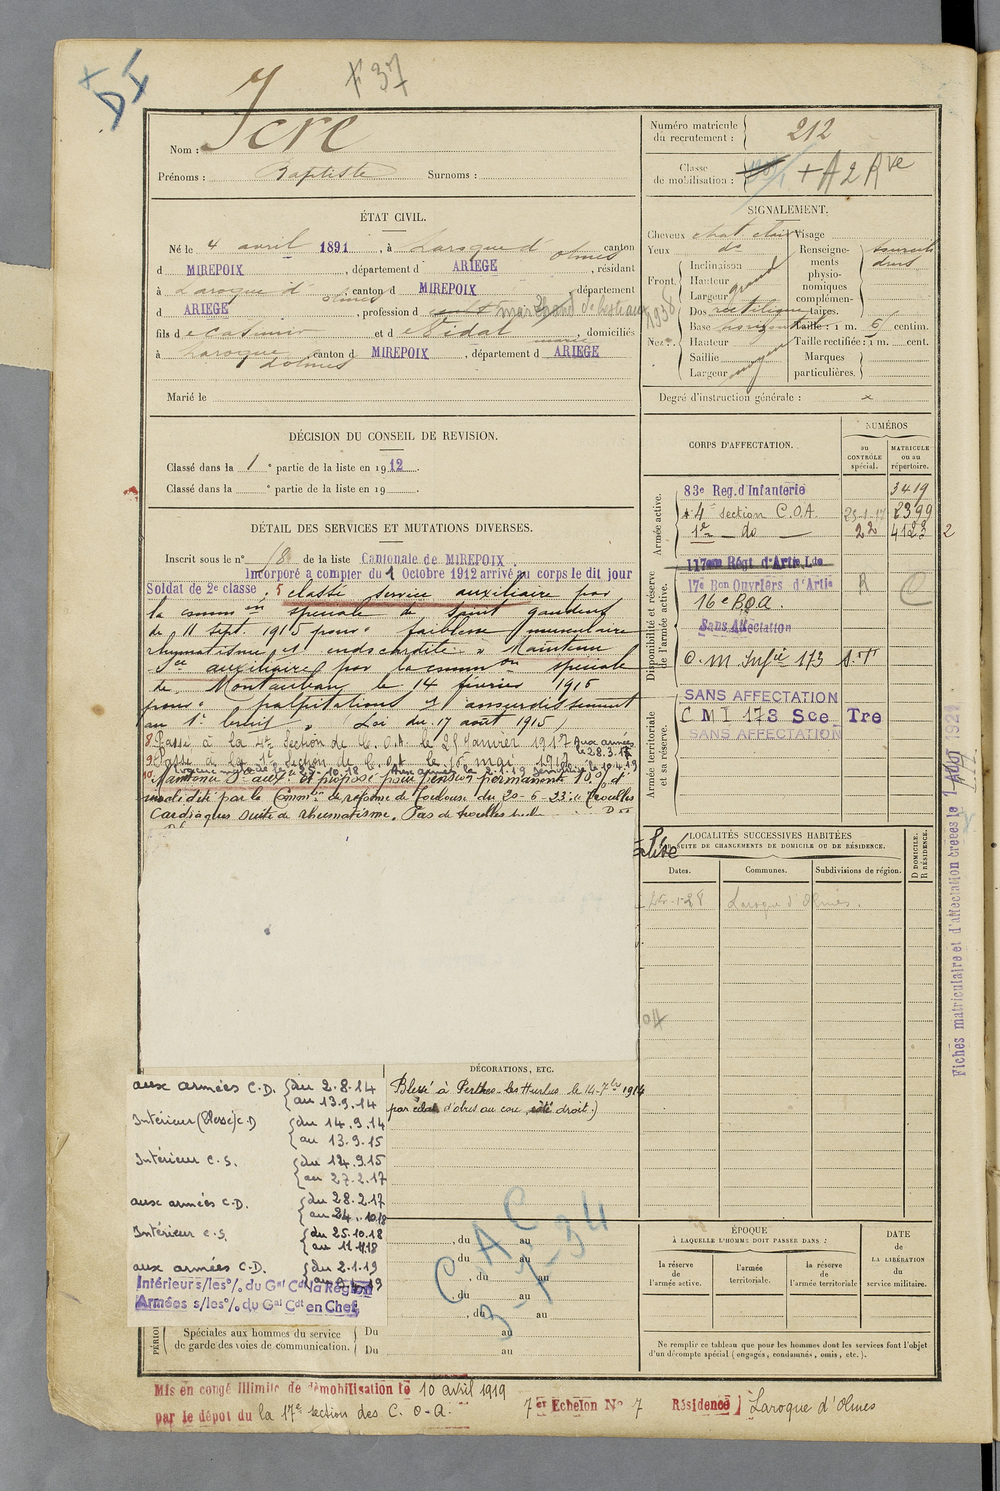 F 37
Nom : Icre
Prénoms : Baptiste Surnoms :
Numéro matricule du recrutement : 212
Classe de mobilisation : + A 2 A ve
ÉTAT CIVIL.
Né le 4 avril 1891, à Laroque d'Olmes canton
d MIREPOIX, département d ARIEGE, résidant
à Laroque d'Olmes, canton d MIREPOIX, département
d ARIEGE, profession d marchand de bestiaux 1938
fils de Casimir et de Vidal Marie, domiciliés
à Laroque d'olmes canton d MIREPOIX, département d ARIEGE
Marié le
SIGNALEMENT.
Cheveux chat. clair Visage
Yeux do Renseigne-
Front. Inclinaison ments
Hauteur grand physio-
Largeur nomiques
complémen-
Dos rectiligne taires.
Nez. Base horizontal Taille : 1 m. 6 centim.
Hauteur Taille rectifiée : 1 m. cent.
Saillie Marques
Largeur moyen particulières.
Degré d'instruction générale : x
DÉCISION DU CONSEIL DE REVISION.
Classé dans la 1e partie de la liste en 1912.
Classé dans la e partie de la liste en 19
CORPS D'AFFECTATION.
NUMÉROS
au CONTRÔLE spécial.
MATRICULE ou au répertoire.
Armée active.
83e Reg. d'Infanterie 3419
4e section C.O.A. 25-1-17 2399
1re do 22 4123 2
Disponibilité et réserve de l'armée active.
117eme Régt d'Artie Lde
17e Bon Ouvriers d'Artie R C
16e B.O.A.
Sans Affectation
C. M. Infie 173 S.T
Armée territoriale et sa réserve.
SANS AFFECTATION
C M I 173 Sce Tre
SANS AFFECTATION
DÉTAIL DES SERVICES ET MUTATIONS DIVERSES.
Inscrit sous le n° 18 de la liste Cantonale de MIREPOIX
Incorporé a compter du 1 Octobre 1912 arrivé au corps le dit jour
Soldat de 2e classe. classé service auxiliaire par
la common spéciale de Saint gaudens
du 11 sept. 1915 pour faiblesse musculaire
rhumatisme et endocardite. Maintenu
Sce auxiliaire par la common spéciale
de Montauban le 14 février 1916
pour palpitations et assourdissement
au 1er bruit (Loi du 17 août 1915)
Passé à la 4e Section de C.O.A. le 25 Janvier 1917 aux armées le 28.3.17
Passé à la 1e Section de C.O.A. le 16 mai 1917
Maintenu S. aux. et proposé pour pension permanente 10%
modifié par la Common de réforme de Toulouse du 20-6-23: Troubles
Cardiaques suite de rhumatisme. Pas de troubles
LOCALITÉS SUCCESSIVES HABITÉES
PAR SUITE DE CHANGEMENTS DE DOMICILE OU DE RÉSIDENCE.
Dates. Communes. Subdivisions de région.
D DOMICILE.
R RÉSIDENCE.
1-28 Laroque d'Olmes.
Fiches matriculaire et d'affectation créées le 1 AOU 1929
aux armées C.D. du 2.8.14
au 13.9.14
Intérieur (blessé) C.D du 14.9.14
au 13.9.15
Intérieur C.S. du 14.9.15
au 27.2.17
aux armées C.D. du 28.2.17
au 24.10.18
Intérieur C.S. du 25.10.18
au 1.1.19
aux armées C.D. du 2.1.19
Intérieurs s/les% du Gal Cdt la Région
Armées s/les% du Gal Cdt en Chef
DÉCORATIONS, ETC.
Blessé à Perthes-les-Hurlus le 14-7bre 1914
par éclat d'obus au cou, côté droit.
C.A.C
3-7-34
, du au
, du au
, du au
, du au
, du au
Spéciales aux hommes du service de garde des voies de communication.
Du au
Du au
ÉPOQUE
À LAQUELLE L'HOMME DOIT PASSER DANS :
la réserve de l'armée active.
l'armée territoriale.
la réserve de l'armée territoriale
DATE de LA LIBÉRATION du service militaire.
Ne remplir ce tableau que pour les hommes dont les services font l'objet
d'un décompte spécial (engagés, condamnés, omis, etc.).
Mis en congé illimité de démobilisation le 10 avril 1919
par le dépot du la 17e section des C. O-A. 7 er Echelon No 7 Résidence Laroque d'Olmes